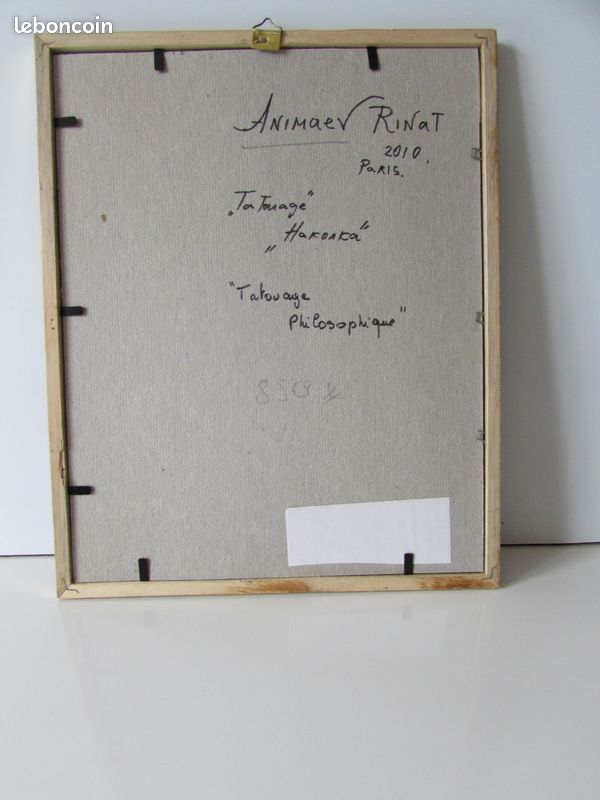 leboncoin
ANIMAEV RINAT
2010.
PARIS.
„Tatouage"
„Наколка"
"Tatouage
Philosophique"
850